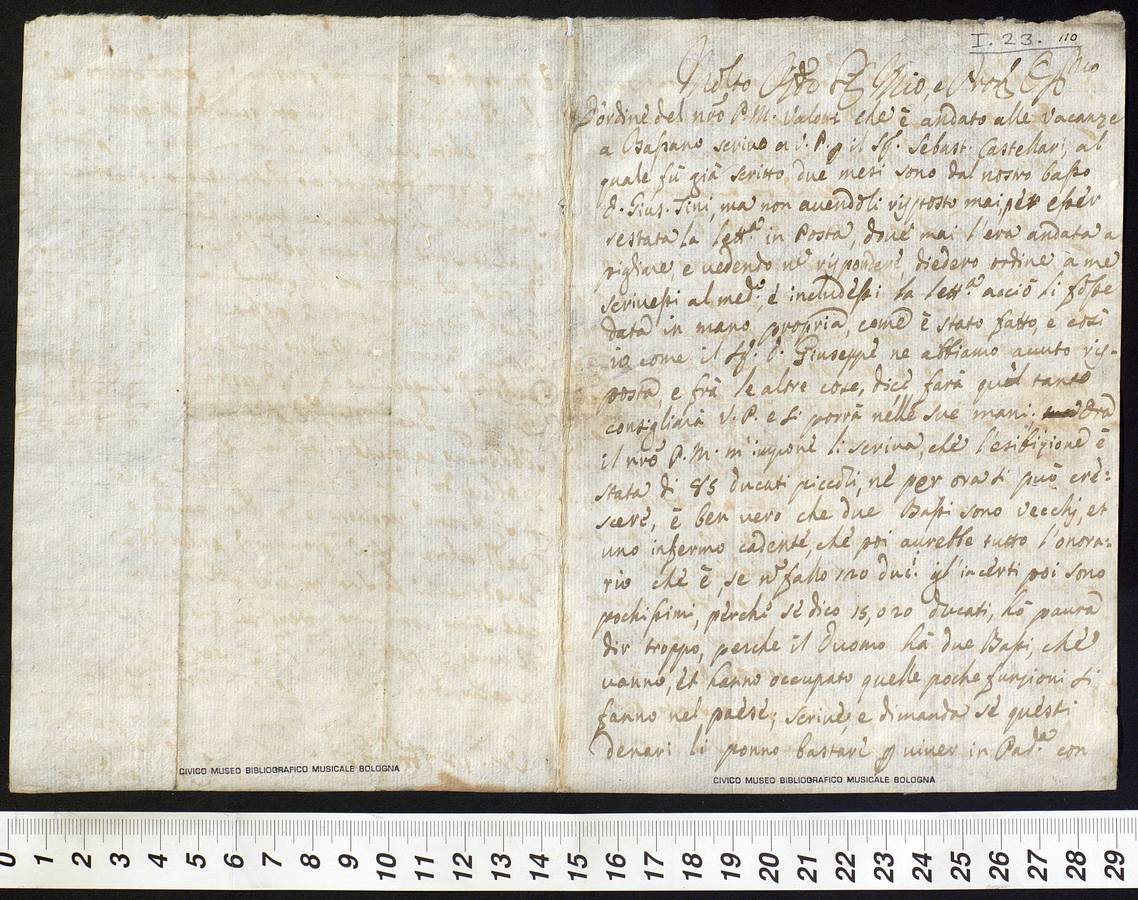 I. 23. 110
Molto Mio, e
D'ordine del nrõ P. M. Valoti che è andato alle vacanze
a Bassano scrivo a V. P. p il Sig. Sebast: Castellari, al
quale fù già scritto due mesi sono dal nostro basso
D. Gius. Tini, ma non avendoli risposto mai, per esser
restata la lett.ª in Posta, dove mai l'era andata a
pigliare e vedendo nõ rispondere, diedero ordine à me
scrivessi al med.º, e includessi la lett.ª acciò li fosse
data in mano propria, come è stato fatto, e così
io come il Sig. D. Giuseppe ne abbiamo avuto ris-
posta, e frà le altre cose, dice farà quel tanto
consiglierà V. P. e si porrà nelle sue mani: Ora
il nrõ P. M. m'impone li scriva, che l'esibizione è
stata di 85 ducati piccoli, nè per ora si può cre:
scere, è ben vero che due Bassi sono vecchj, et
uno infermo cadente, che poi avrebbe tutto l'onora:
rio che è, se nõ fallo 120 duc: gl'incerti poi sono
pochissimi, perchè se dico 15, o 20 ducati, hò paura
dir troppo, perche il Duomo hà due Bassi, che
vanno, et hanno occupato quelle poche funzioni si
fanno nel paese; scrive, e dimanda se questi
denari li ponno bastare p viver in Pad.ª con
CIVICO MUSEO BIBLIOGRAFICO MUSICALE BOLOGNA
CIVICO MUSEO BIBLIOGRAFICO MUSICALE BOLOGNA
0 1 2 3 4 5 6 7 8 9 10 11 12 13 14 15 16 17 18 19 20 21 22 23 24 25 26 27 28 29